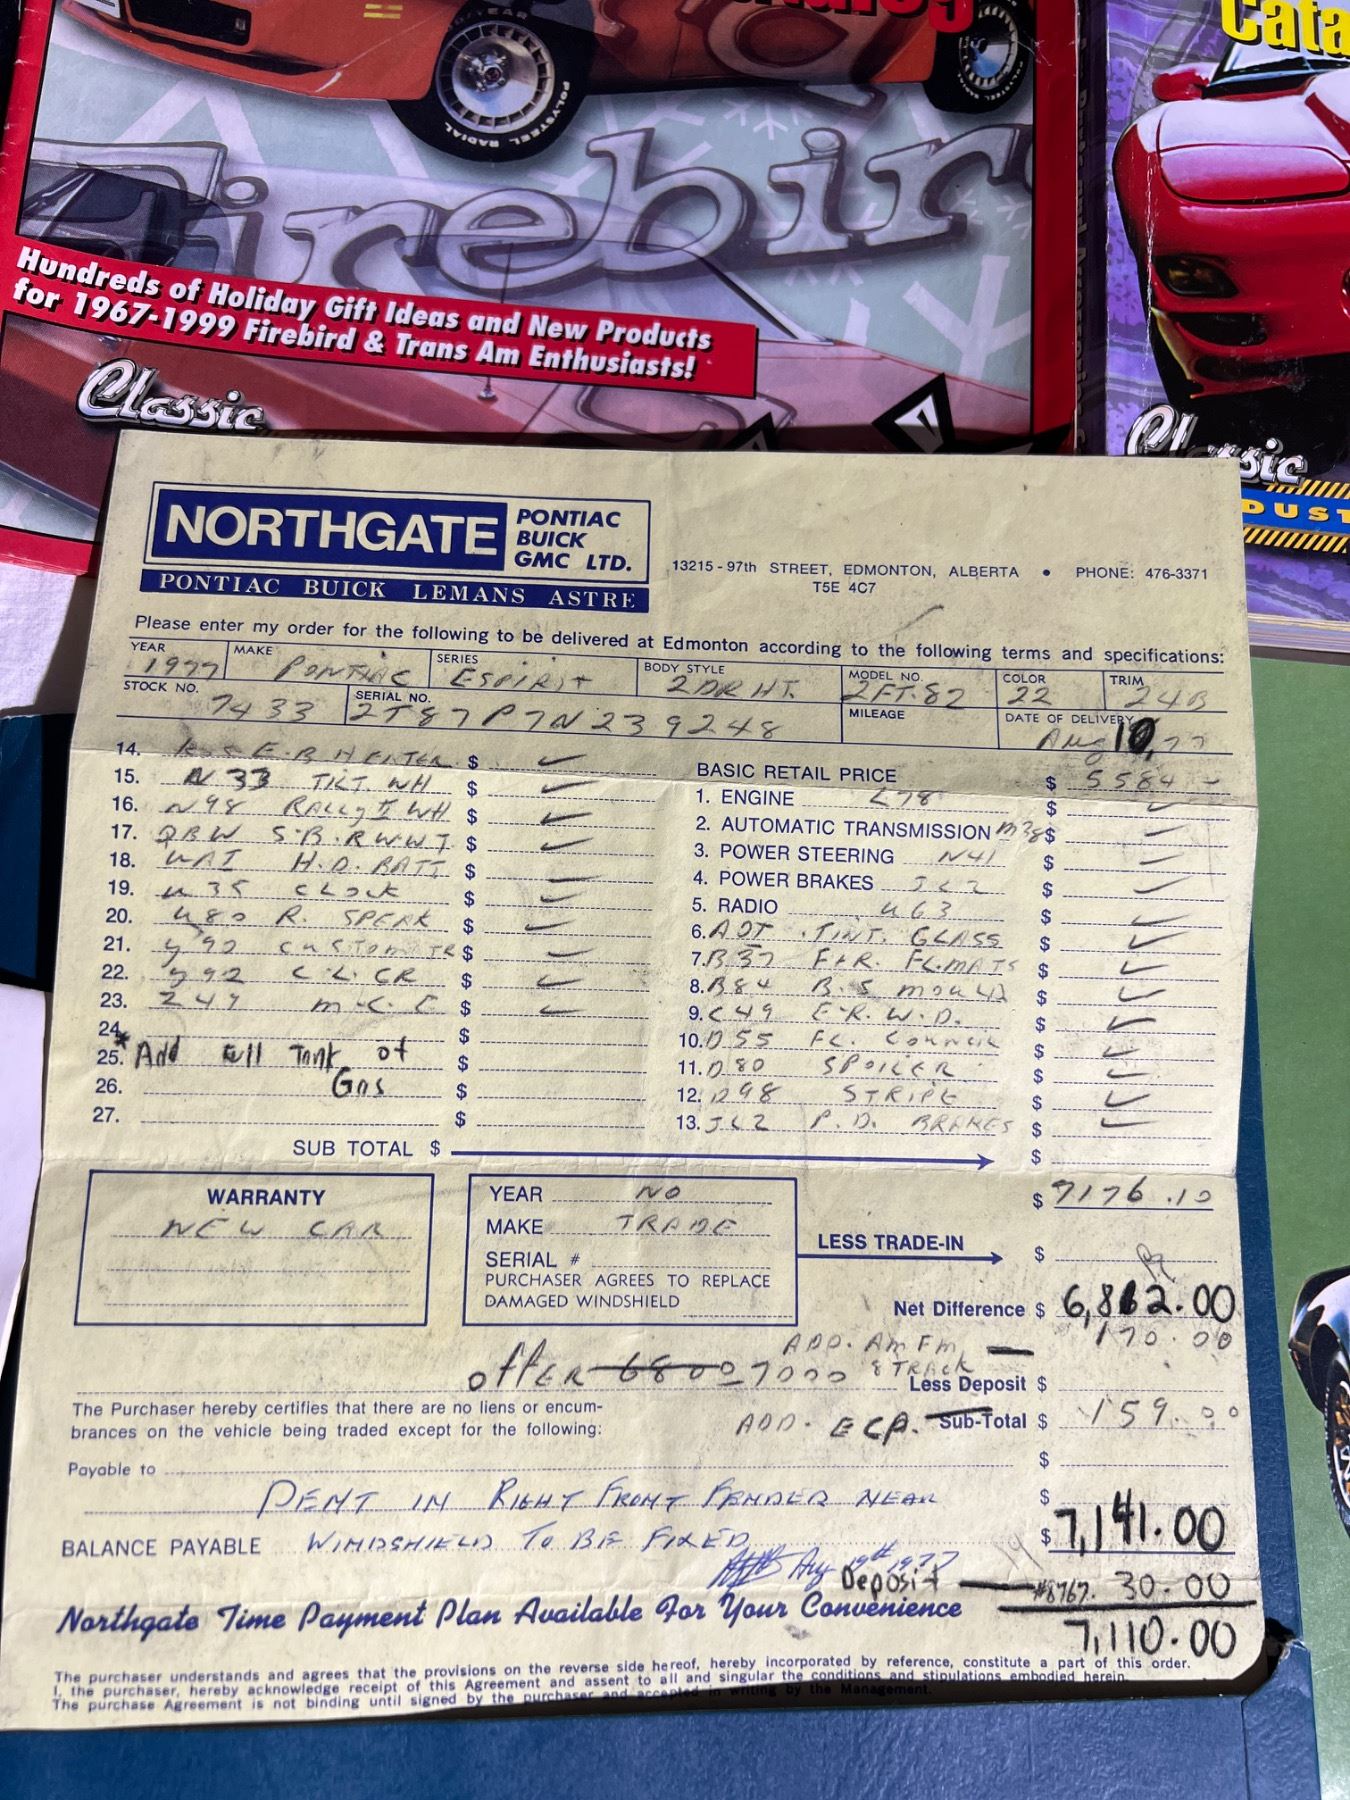 Cata
Firebir
Hundreds of Holiday Gift Ideas and New Products
for 1967-1999 Firebird & Trans Am Enthusiasts!
Classic
Classic
DUST
POLYSTEEL RADIAL
NORTHGATE PONTIAC BUICK GMC LTD.
PONTIAC BUICK LEMANS ASTRE
13215 - 97th STREET, EDMONTON, ALBERTA • PHONE: 476-3371
T5E 4C7
Please enter my order for the following to be delivered at Edmonton according to the following terms and specifications:
YEAR 1977 MAKE PONTIAC SERIES ESPIRIT BODY STYLE 2 DR HT. MODEL NO. 2FT.82 COLOR 22 TRIM 24B
STOCK NO. 7433 SERIAL NO. 2T87P7N239248 MILEAGE DATE OF DELIVERY Aug 10, 77
14. E.B HEATER $
15. N33 TILT. WH $
16. N98 RALLY II WH $
17. QBW S.B.RWWT $
18. UAI H.D. BATT $
19. U35 CLOCK $
20. U80 R. SPEAK $
21. Y92 CUSTOM TR $
22. Y92 C.L. CR $
23. Z49 M.C.E $
24. $
25. * Add Full Tank of $
26. Gas $
27. $
BASIC RETAIL PRICE $ 5584 -
1. ENGINE L78 $
2. AUTOMATIC TRANSMISSION M38 $
3. POWER STEERING N41 $
4. POWER BRAKES JL2 $
5. RADIO U63 $
6. AOT TINT. GLASS $
7. B37 F+R. FL.MATS $
8. B84 B.S MOULD $
9. C49 E.R.W.D. $
10. D55 FL. CONSOL $
11. D80 SPOILER $
12. D98 STRIPE $
13. JL2 P.D. BRAKES $
SUB TOTAL $ $
WARRANTY
NEW CAR
YEAR NO
MAKE TRADE
SERIAL #
PURCHASER AGREES TO REPLACE
DAMAGED WINDSHIELD
$ 7176.10
LESS TRADE-IN $
Net Difference $ 6,812.00
ADD. Am Fm 170.00
8 TRACK
offER 6800 7000 Less Deposit $
The Purchaser hereby certifies that there are no liens or encum-
brances on the vehicle being traded except for the following:
ADD. ECP. Sub-Total $ 159.00
Payable to $
DENT IN RIGHT FRONT FENDER NEAR $
BALANCE PAYABLE WINDSHIELD TO BE FIXED $ 7,141.00
Aug 19th 1977
Deposit #8767. 30.00
Northgate Time Payment Plan Available For Your Convenience
7,110.00
The purchaser understands and agrees that the provisions on the reverse side hereof, hereby incorporated by reference, constitute a part of this order.
I, the purchaser, hereby acknowledge receipt of this Agreement and assent to all and singular the conditions and stipulations embodied herein.
The purchase Agreement is not binding until signed by the purchaser and accepted in writing by the Management.